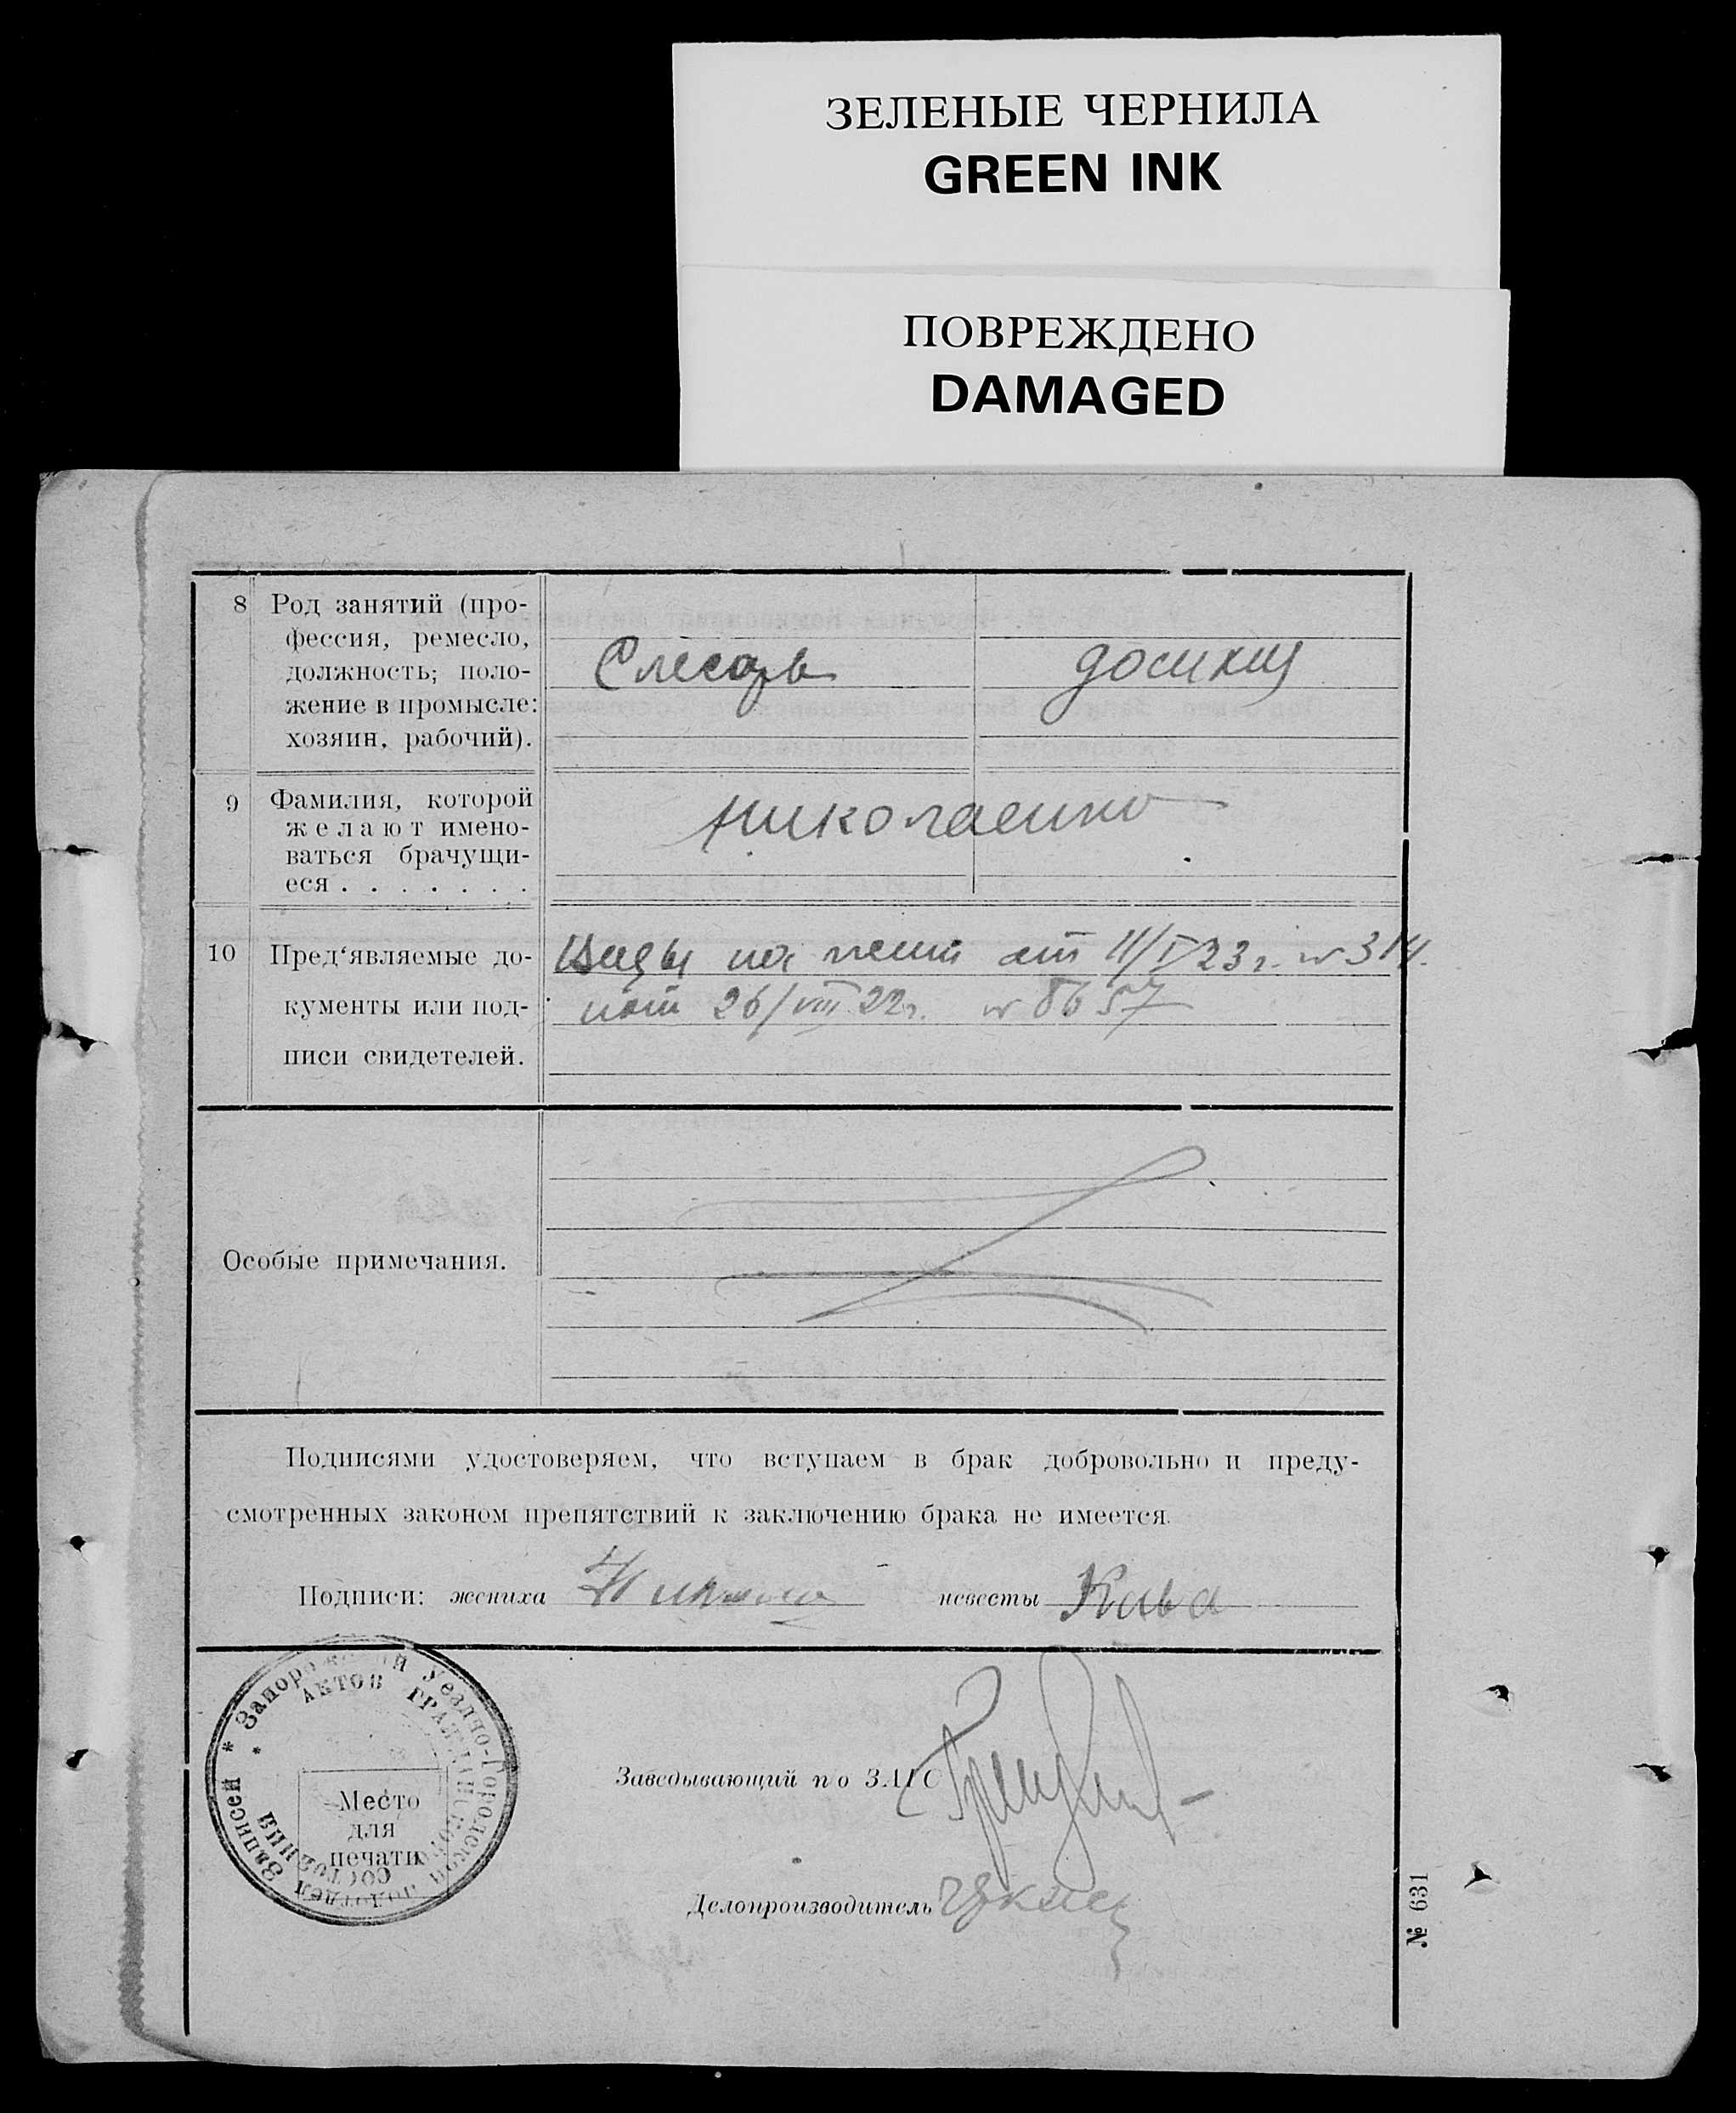 ЗЕЛЕНЫЕ ЧЕРНИЛА
GREEN INK
ПОВРЕЖДЕНО
DAMAGED
8 Род занятий (про-
фессия, ремесло,
должность; поло-
жение в промысле:
хозяин, рабочий).
Слесарь
9 Фамилия, которой
желают имено-
ваться брачущи-
еся . . . . . . .
Николаенко
10 Пред‘являемые до-
кументы или под-
писи свидетелей.
Виды на жит от 11/I 23 г. № 314.
и от 26/VIII 22 г. № 8657
Особые примечания.
Подписями удостоверяем, что вступаем в брак добровольно и преду-
смотренных законом препятствий к заключению брака не имеется.
Подписи: жениха невесты
* Запорожский Уездно-Городской подотдел Записей
* АКТОВ ГРАЖДАНСКОГО СОСТОЯНИЯ
Место
для
печати
Заведывающий по ЗАГС
Делопроизводитель
№ 631